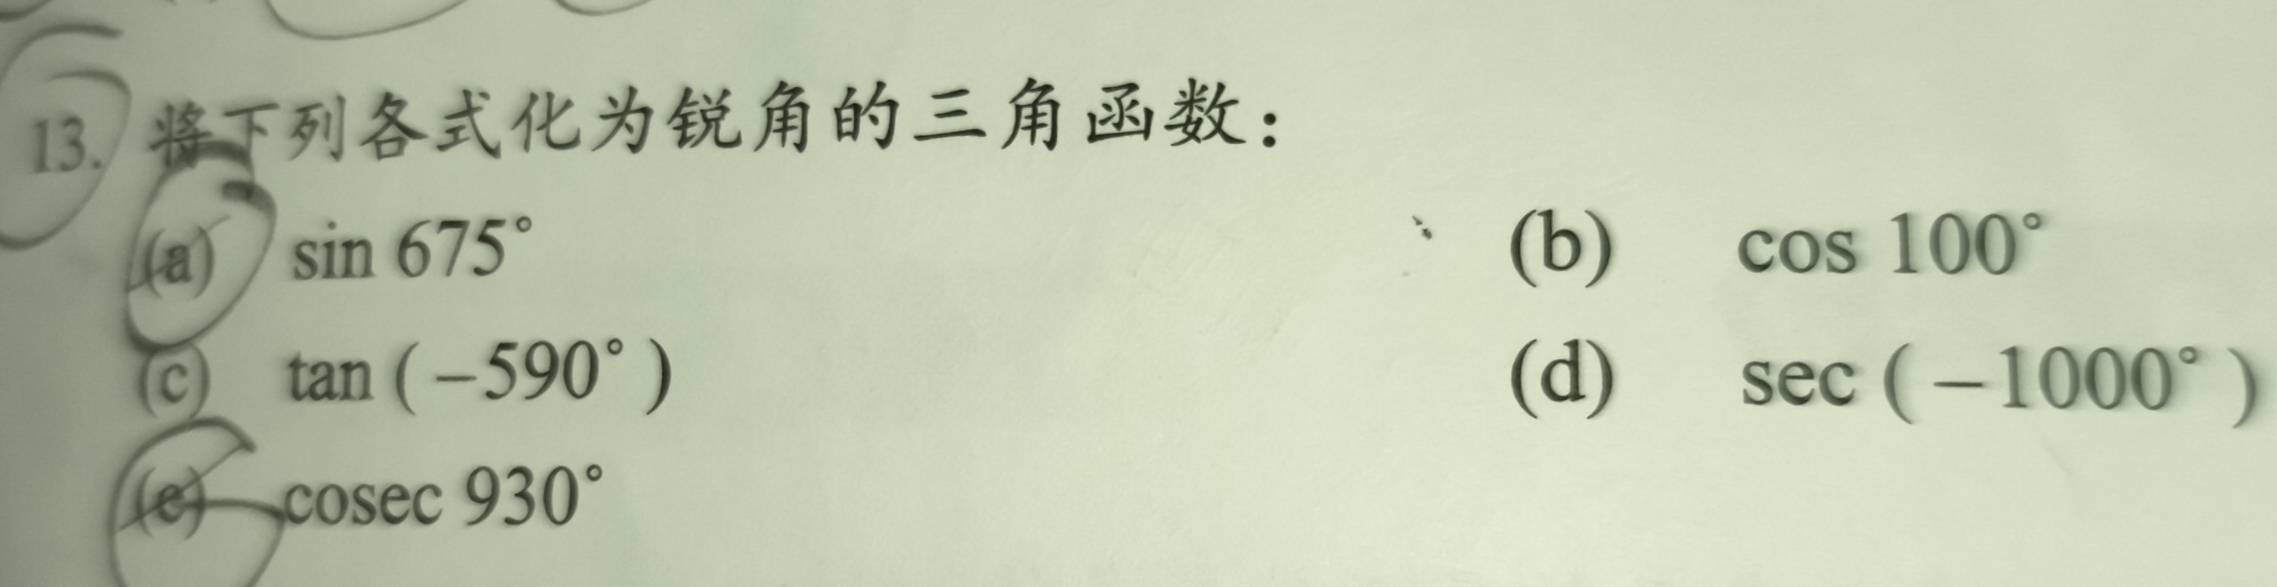 13. 将下列各式化为锐角的三角函数：
(a) sin 675° (b) cos 100°
(c) tan ( −590° ) (d) sec ( −1000° )
(e) cosec 930°